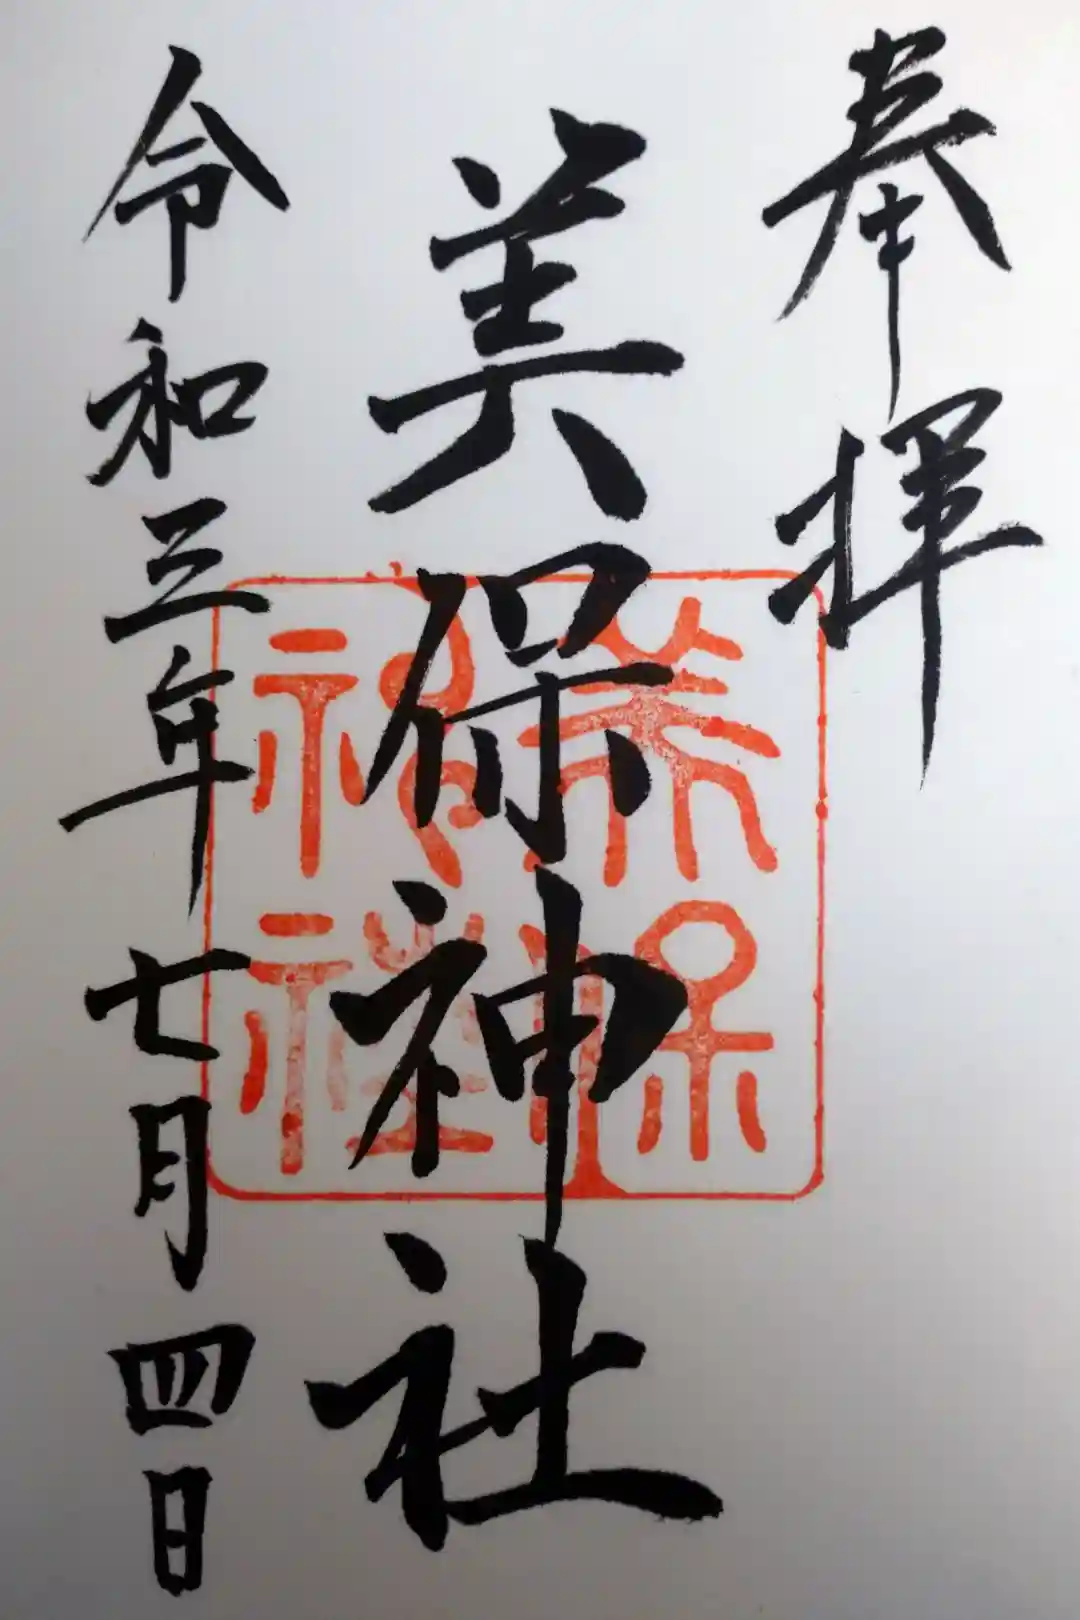 奉拝
美保神社
美保神社
令和三年七月四日